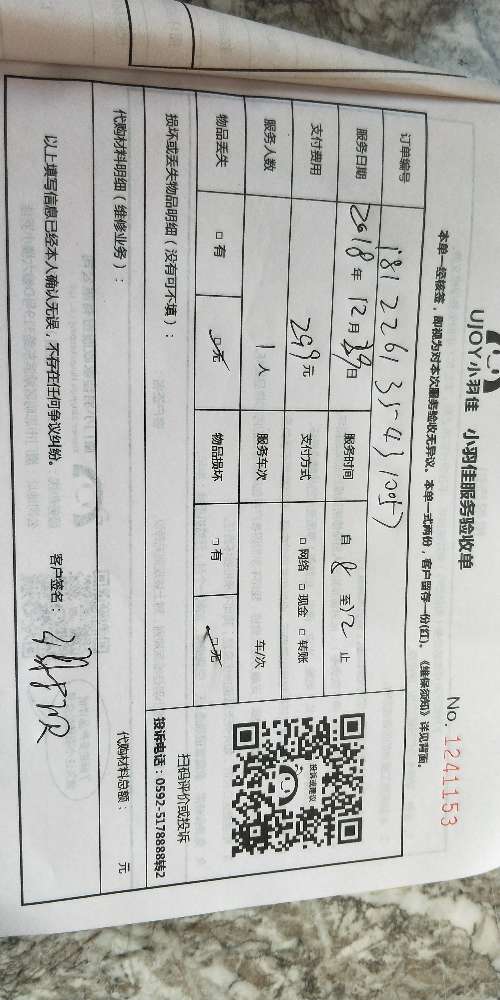 UJOY小羽佳 小羽佳服务验收单
No. 1241153
本单一经核签，即视为对本次服务验收无异议。本单一式两份，客户留存一份(红)。《维保须知》详见背面。
订单编号
服务日期 2018 年 12 月 29 日 服务时间 自 8 至 12 止
支付费用 299 元 支付方式 □ 网络 □ 现金 □ 转账
服务人数 1 人 服务车次 车/次
物品丢失 □ 有 □ 无 物品损坏 □ 有 □ 无
投诉或建议
扫码评价或投诉
投诉电话：0592-5178888转2
损坏或丢失物品明细（没有可不填）：
代购材料明细（维修业务）： 代购材料总额： 元
以上填写信息已经本人确认无误，不存在任何争议纠纷。 客户签名：